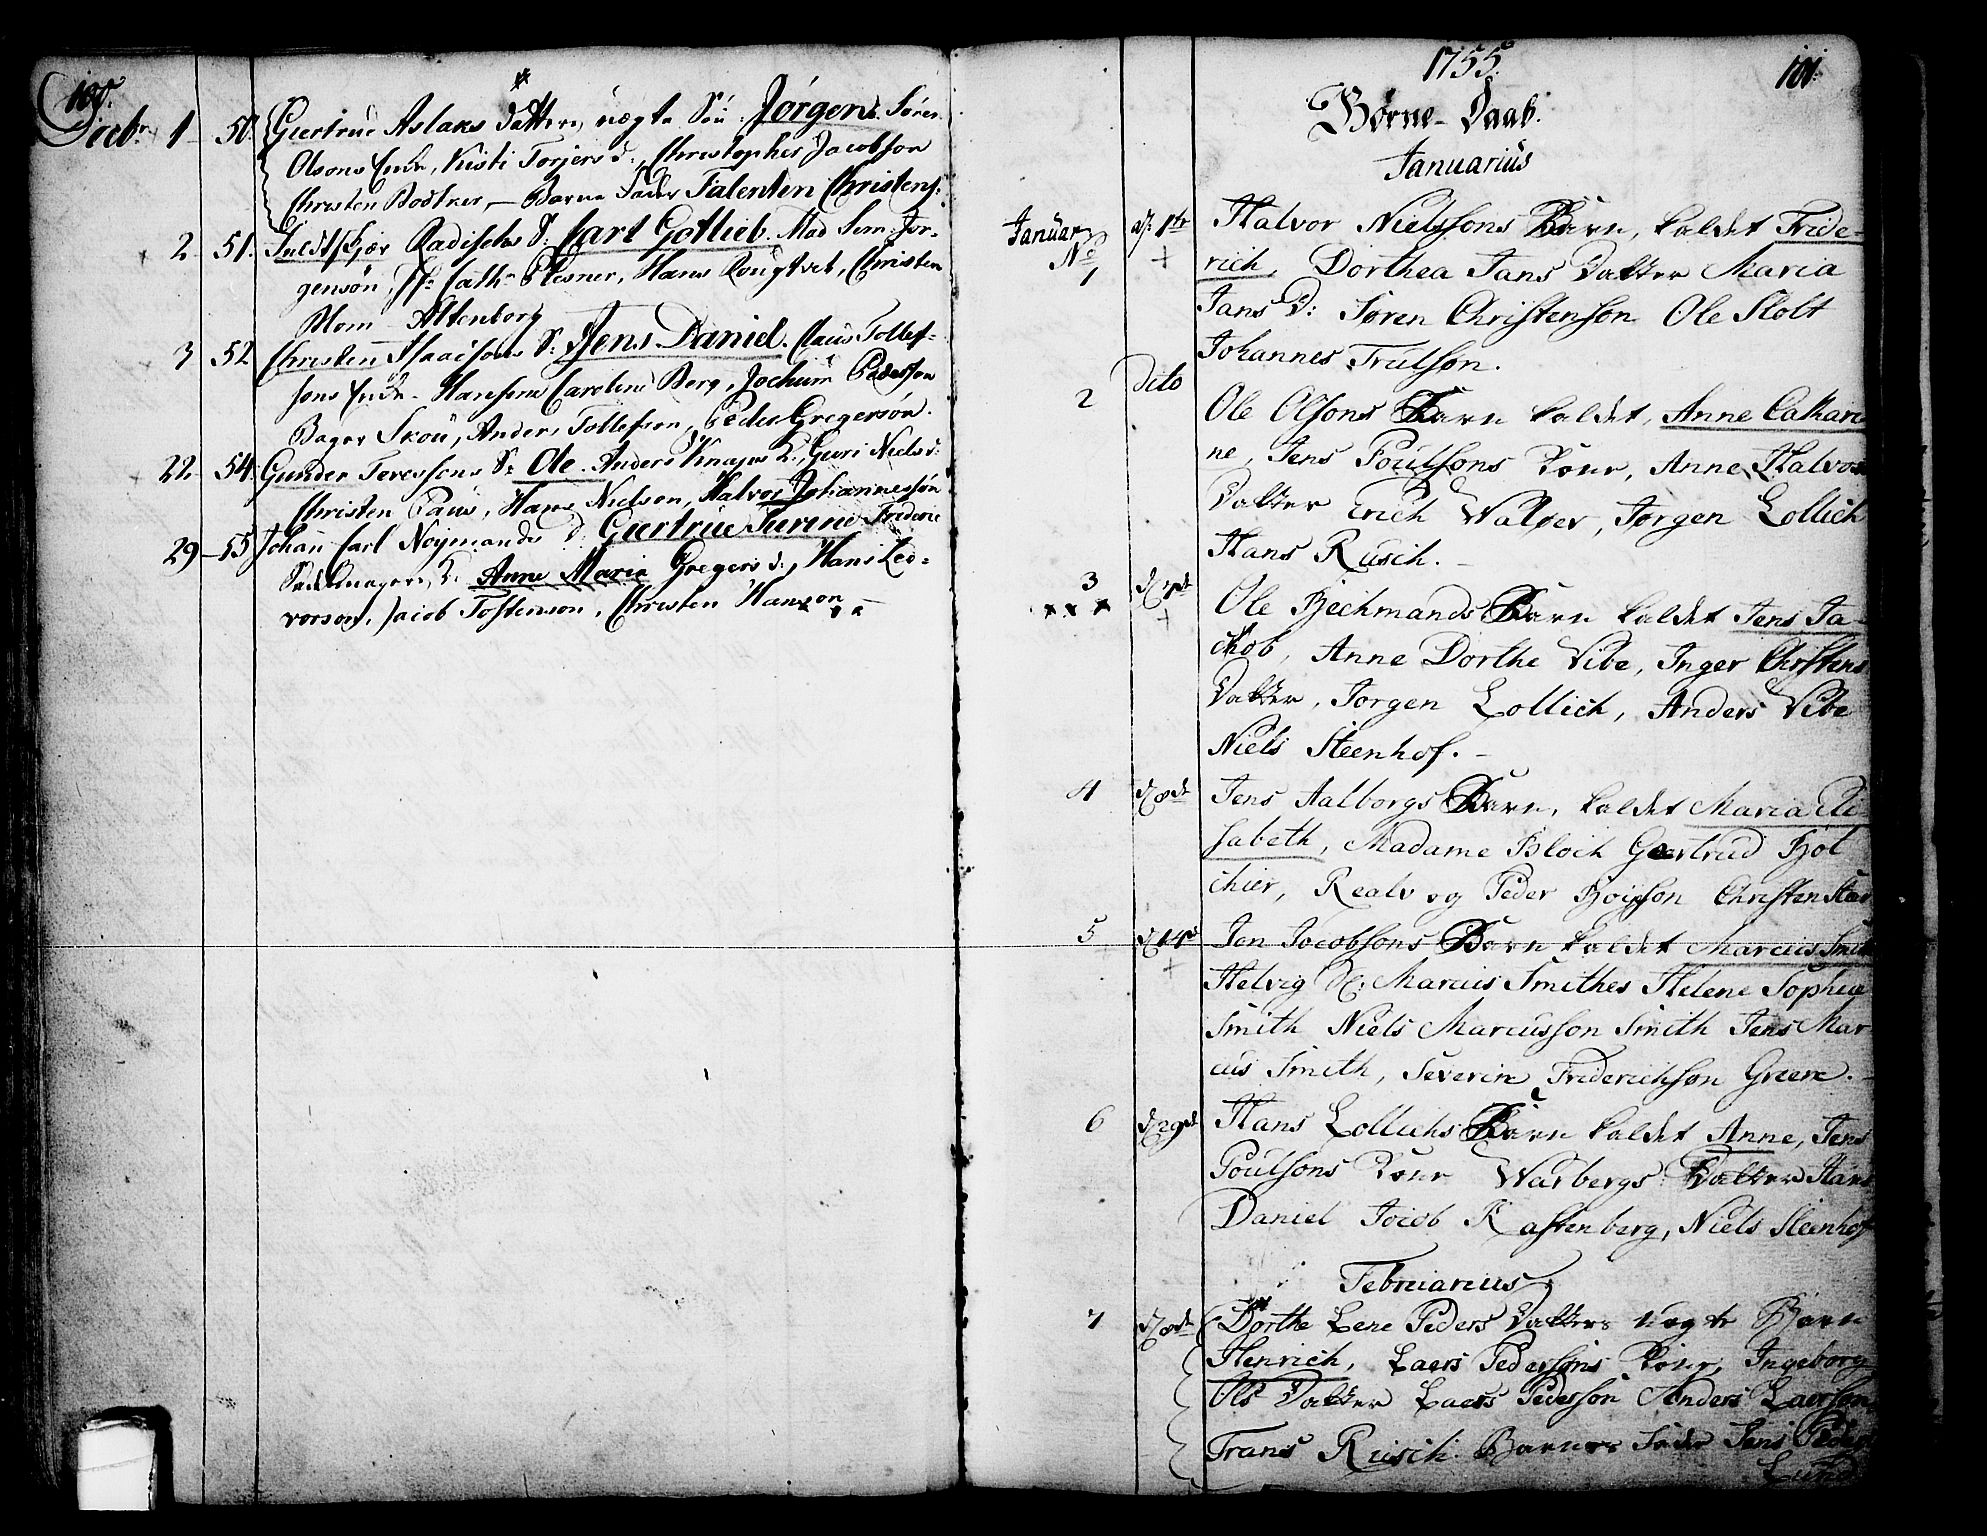 100.
Decbr 1 50 Giertrue Aslaks Datters uægte Sön Jörgen. Sören
Olsons Enke, Kisti Torjers d:, Christopher Jacobson
Christen Bodtker, — Barne Fader Falenten Christens:
2 51. Carl Gotlieb. Mad Sem: Jör-
gensön, Cath: Plesner, Hans Rougtvet, Christen
Blom - Altenborg
3 52 Christen Isaacsons S: Jens Daniel. Claus Tollef-
sons Enke - Caroline Berg, Jochum Pederson
Bager Skou, Anders Tollefson, Peder Gregersön.
22 54. Gunder Teressons S: Ole. Anders Knaps K:, Guri Niels d:
Christen Paus, Hans Nielson, Halvor Johannessön
29 55 Johan Carl Noymands d: Giertrue Severine
K: Anne Maria Gregers d:, Hans Led=
vorson, Jacob Tostenson, Christen Hanson
1755. 101.
Börne-Daab.
Januarius
Januar d. 1te Halvor Nielssons Barn, kaldet Fride-
No 1 rich, Dorthea Jans Datter Maria
Jans D: Sören Christenson Ole Stolt
Johannes Trulson.
2 Dito Ole Olsons Barn kaldet, Anne Cathari
ne, Jens Poulsons Kone, Anne Halvors
Datter Erich Walöer, Jörgen Lollich
Hans Rusch.
3 Ole Beckmands Barn kaldet Jens Ja-
ckob, Anne Dorthe Vibe, Inger Christens
Datter, Jörgen Lollich, Anders Vibe
Niels Steenhof.
4 d 8de Jens Aalborgs Barn, kaldet Maria Eli-
sabeth, Madame Bloch Giertrud Böt
chier, Realv og Peder Boison Christen
5 d 14de Jen Jacobsons Barn kaldet Marcus Smith
Helvig Marcus Smithes Helene Sophia
Smith Niels Marcusson Smith Jens Mar
cus Smith, Severin Friderichson Green.
6 d 29de Hans Lollichs Barn kaldet Anne, Jens
Poulsons Kone Warbergs Datter Hans
Daniel Jacob Kastenberg, Niels Steenhof
Februarius
7 d 8de Dorthe Lene Peders Datters uægte Barn
Henrich, Laers Pedersons Kone, Ingeborg
Ols Datter Laers Pederson Anders Laerson
Frans Rusch. Barnes Fader Jens Peder
Lund